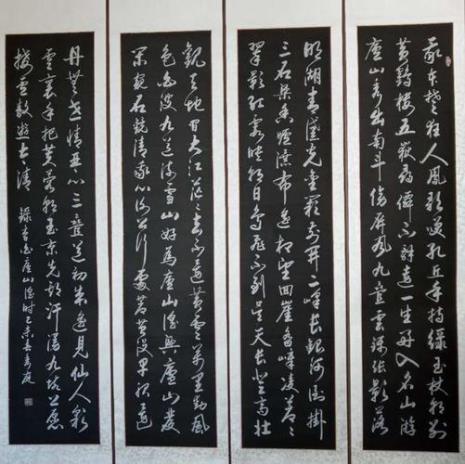 我本楚狂人鳳歌笑孔丘手持綠玉杖朝別
黃鶴樓五嶽尋仙不辭遠一生好入名山遊
廬山秀出南斗傍屏風九疊雲錦張影落
明湖青黛光金闕前開二峰長銀河倒掛
三石梁香爐瀑布遙相望回崖沓嶂凌蒼蒼
翠影紅霞映朝日鳥飛不到吳天長登高壯
觀天地間大江茫茫去不還黃雲萬里動風
色白波九道流雪山好為廬山謠興廬山發
閑窺石鏡清我心謝公行處蒼苔沒早服還
丹無世情琴心三疊道初成遙見仙人彩
雲裏手把芙蓉朝玉京先期汗漫九垓上願
接盧敖遊太清 錄李白廬山謠時乙未